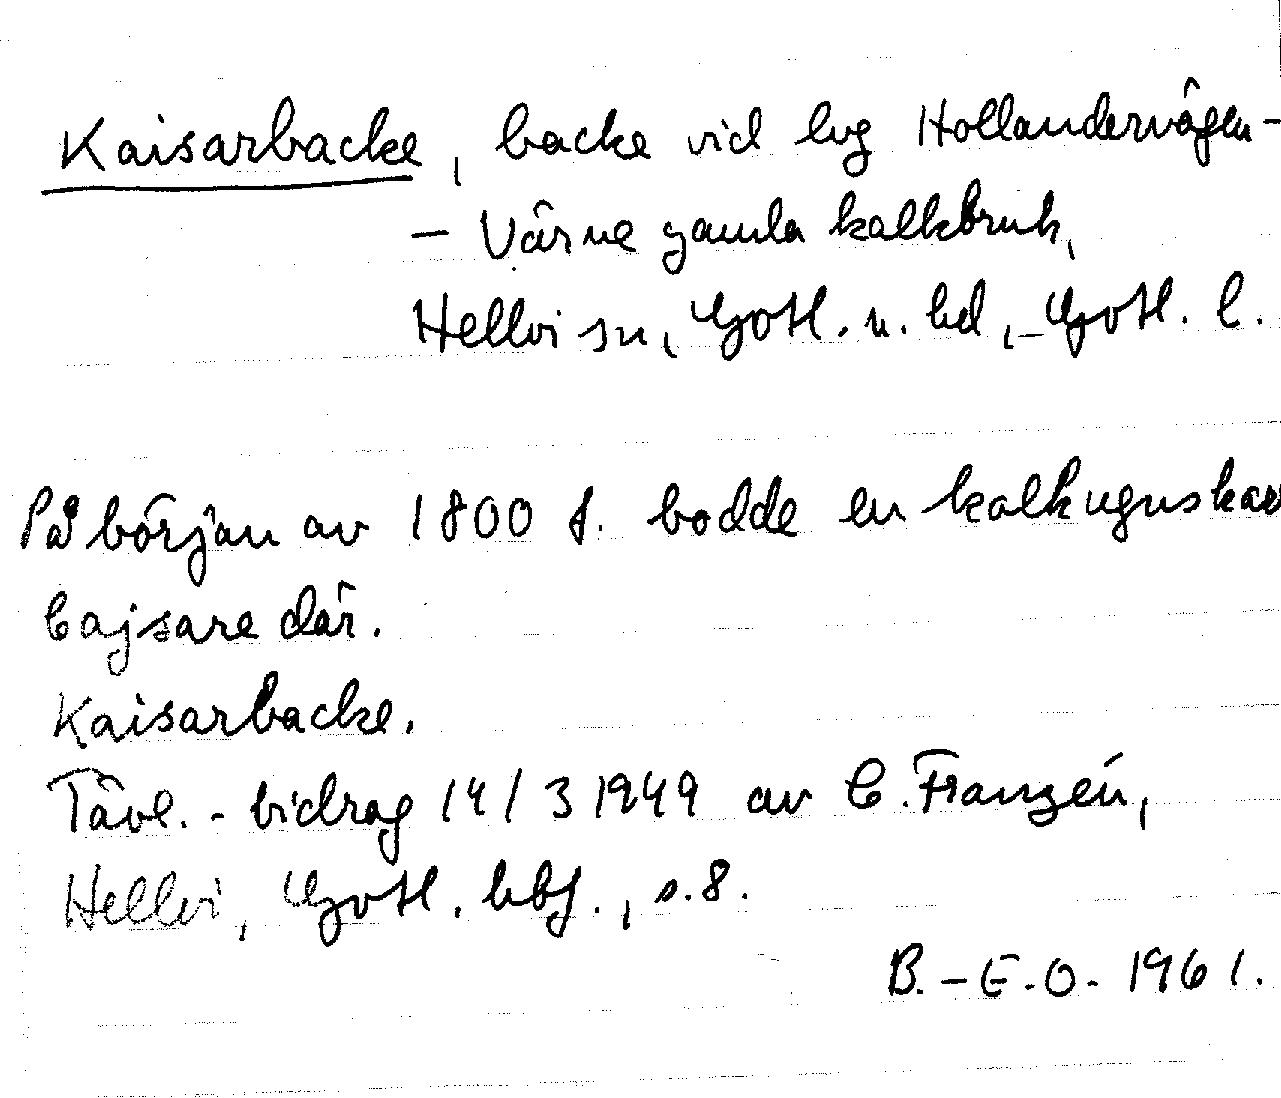 Kaisarbacke, backe vid lvg Hollandervägen-
- Värne gamla kalkbruk,
Hellvi sn, Gotl. n. hd, Gotl. l.
På början av 1800 t. bodde en kalkugnskar
Cajsare där.
Kaisarbacke.
Tävl.-bidrag 14/3 1949 av C. Franzén,
Hellvi, Gotl. hbf., s.8.
B.-E.O. 1961.